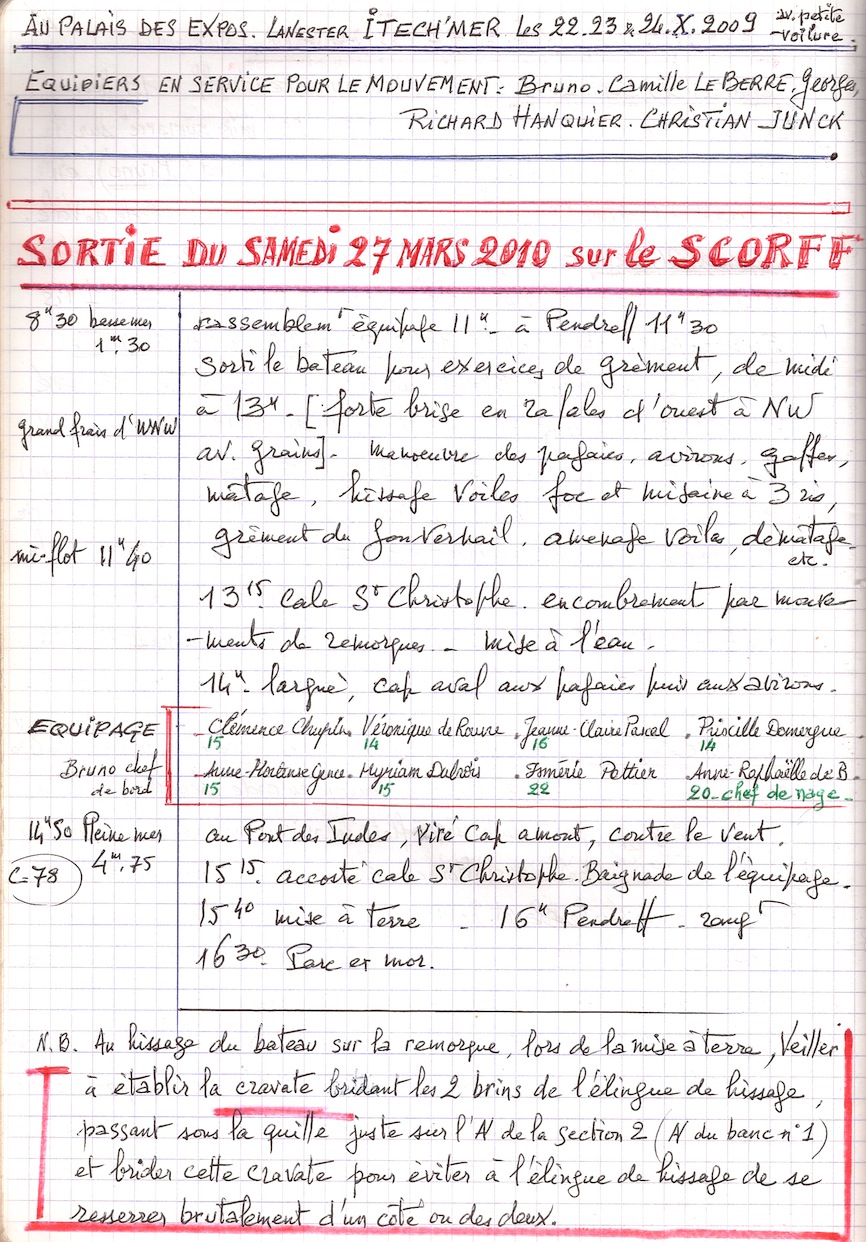 AU PALAIS DES EXPOS. LANESTER ITECH'MER Les 22.23 & 24.X.2009 av. petite
-voilure.
EQUIPIERS EN SERVICE POUR LE MOUVEMENT: Bruno. Camille LE BERRE. Georges,
RICHARD HANQUIER. CHRISTIAN JUNCK
SORTIE DU SAMEDI 27 MARS 2010 sur le SCORFF
8ʰ30 basse mer
1ᵐ.30
rassemblemᵗ équipage 11ʰ - à Pendreff 11ʰ30
Sorti le bateau pour exercices de grèment, de midi
à 13ʰ - [forte brise en rafales d'ouest à NW
grand frais d'WNW
av. grains]. manoeuvre des pagaies, avirons, gaffes,
mâtage, hissage voiles foc et misaine à 3 ris,
grèment du gouvernail, amenage voiles, dématage
etc.
mi-flot 11ʰ40
13¹⁵ Cale Sᵗ Christophe. encombrement par mouve-
-ments de remorques. - mise à l'eau.
14ʰ. largué, cap aval aux pagaies puis aux avirons.
EQUIPAGE
Bruno chef
de bord
- Clémence Chuplin. Véronique de Rouvre . Jeanne-Claire Pascal . Priscille Domergue
15 14 16 14
Anne-Hortense . Myriam Dubois . Ismérie Pottier . Anne-Raphaëlle de B.
15 15 22 20 - chef de nage.
14ʰ50 Pleine mer
4ᵐ.75
C=78
au Pont des Indes, viré cap amont, contre le vent.
15¹⁵. accosté cale Sᵗ Christophe. Baignade de l'équipage.
15⁴⁰ mise à terre - 16ʰ Pendreff - rangᵗ
16³⁰. Parc et mor.
N.B. Au hissage du bateau sur la remorque, lors de la mise à terre, Veiller
à établir la cravate bridant les 2 brins de l'élingue de hissage,
passant sous la quille juste sur l'AV de la section 2 (AV du banc n°1)
et brider cette cravate pour éviter à l'élingue de hissage de se
resserrer brutalement d'un côté ou des deux.